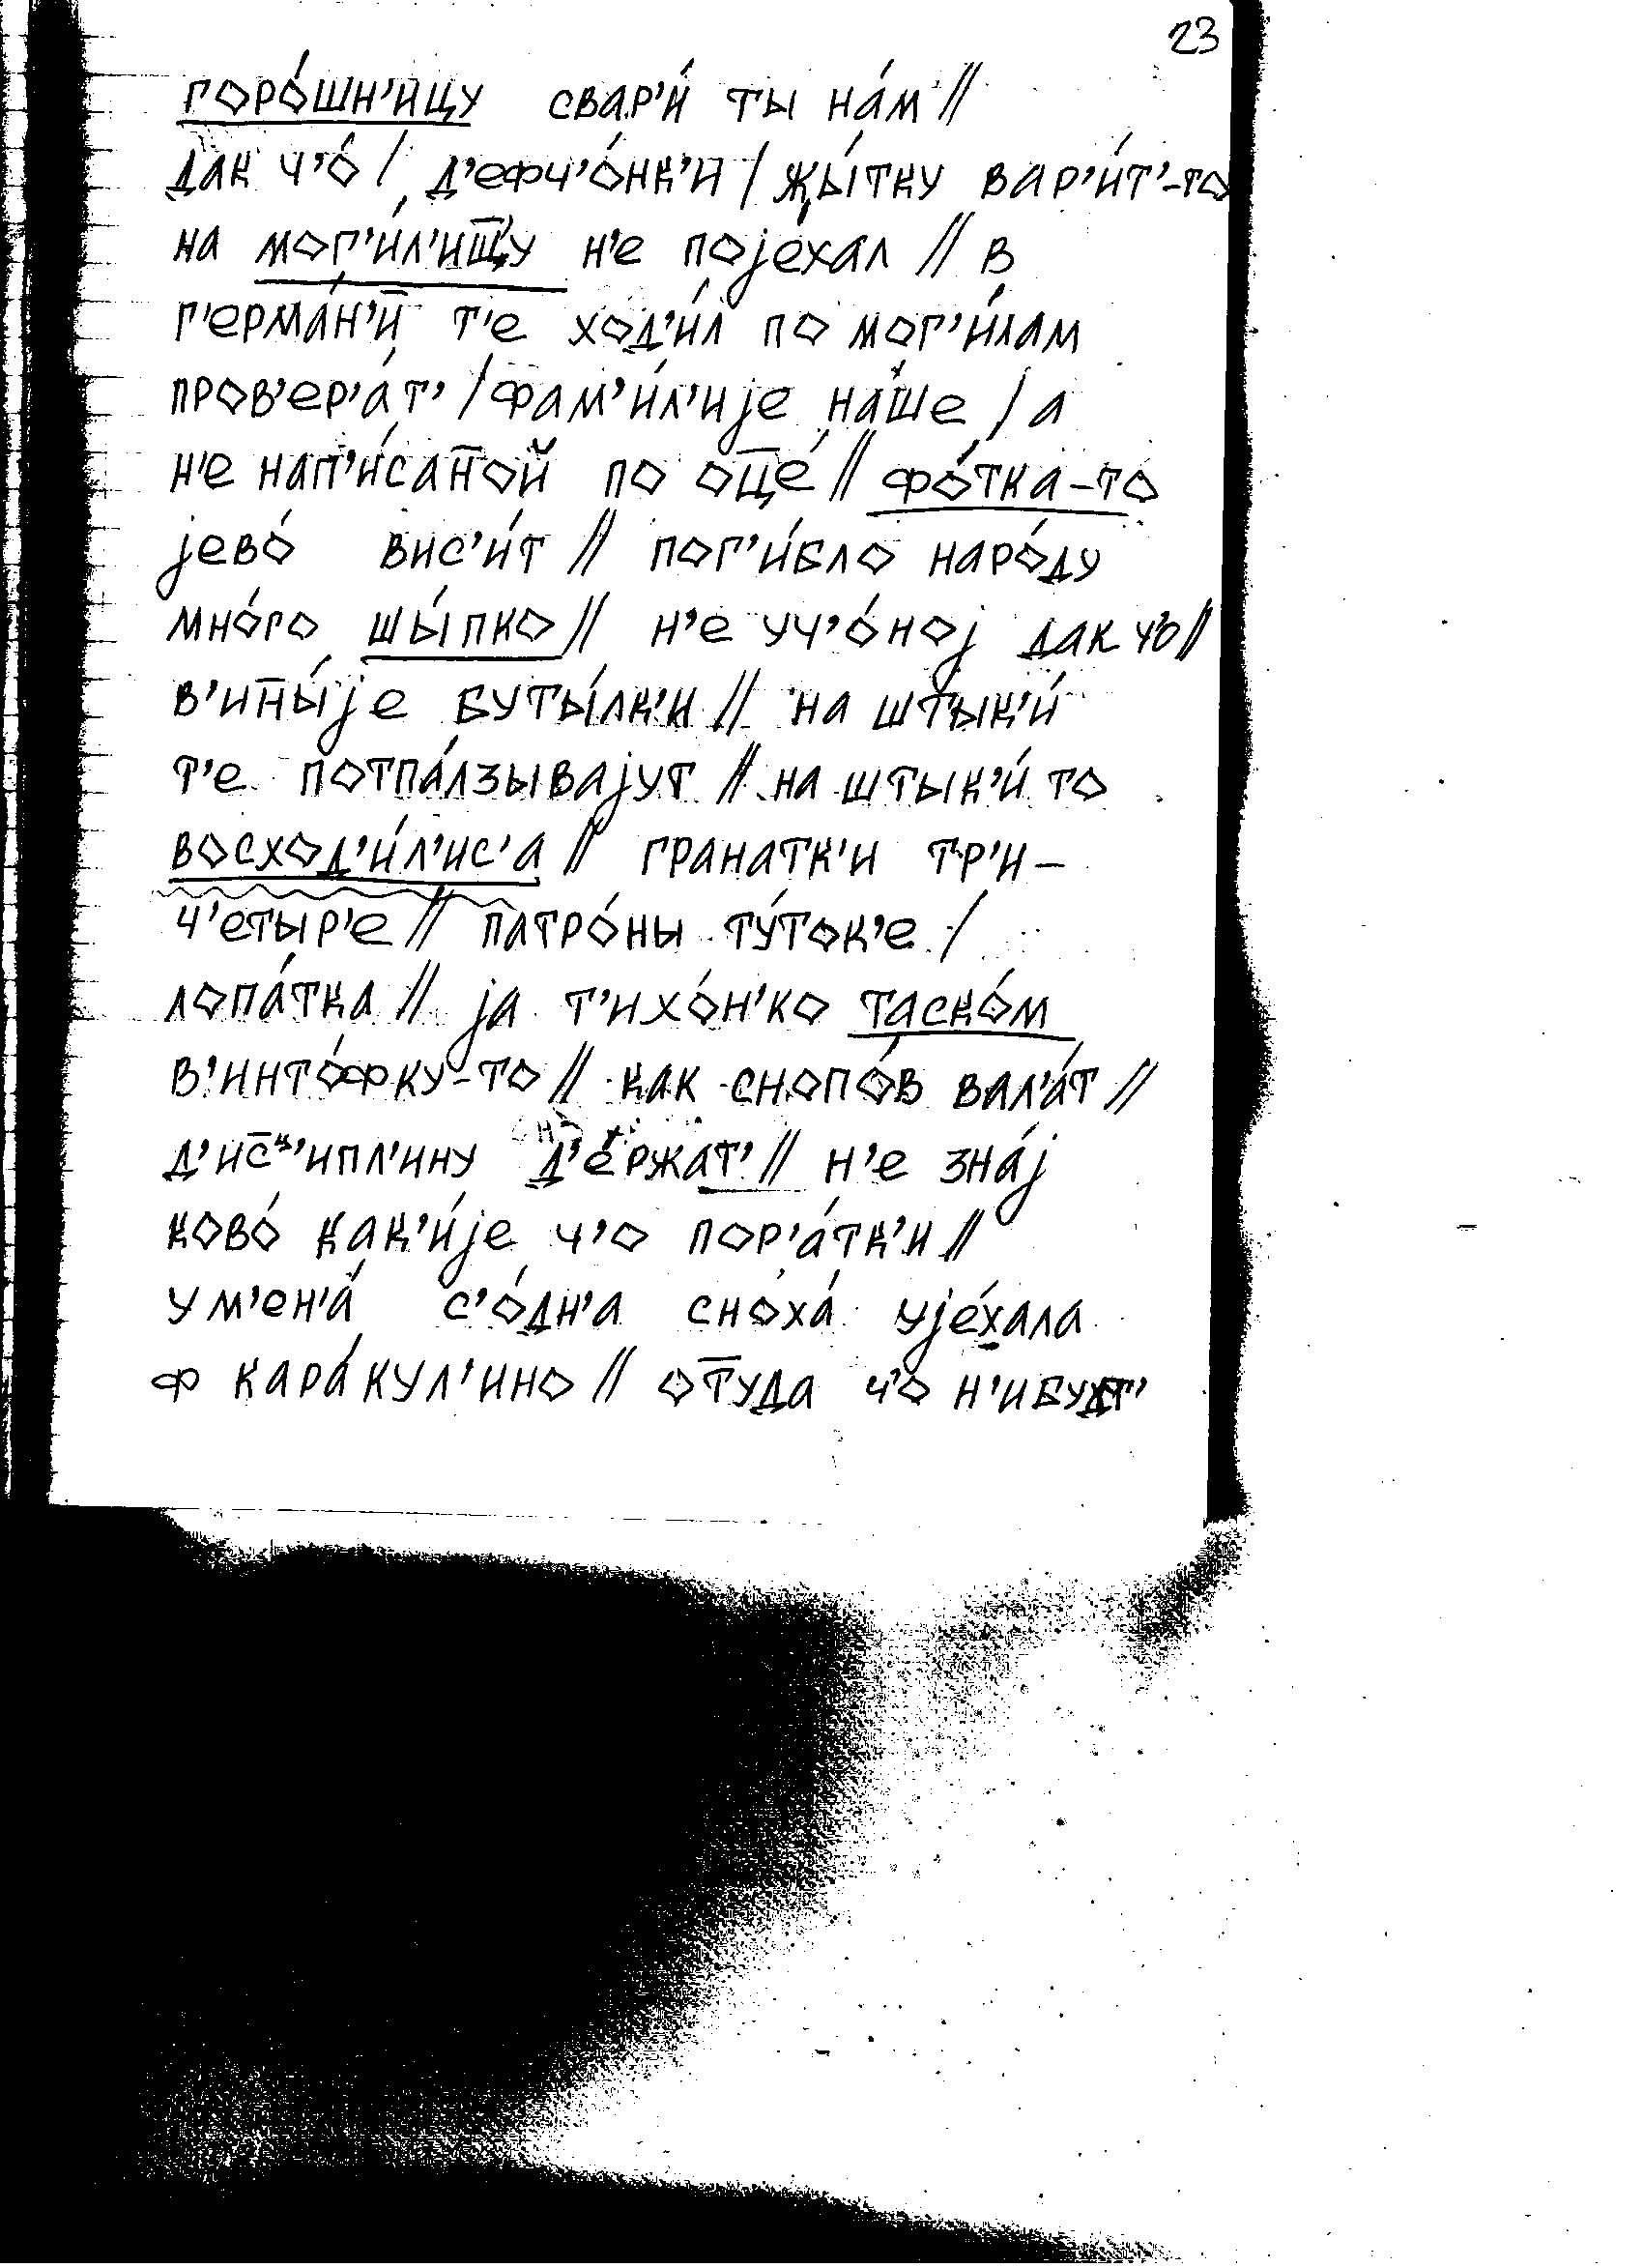 23
горо́шн'ицу свар'и́ ты на́м //
дак ч'о́ / д'ефч'о́нк'и / жы́тку вар'и́т'-то
на мог'и́л'ищ̅'у н'е поjе́хал // в
г'ерма́н'и̅ т'е ход'и́л по мог'и́лам
пров'ер'а́т' / фам'и́л'иjе на́ше / а
н'е нап'и́сан̅ой по оц̅е́ // фо́тка-то
jево́ вис'и́т // пог'и́бло наро́ду
мно́го шы́пко // н'е уч'о́ноj дак ч'о //
в'ин̅ы́jе буты́лк'и // на штык'и́
т'е потпа́лзываjут // на штык'и́ то
восход'и́л'ис'а // гранатк'и тр'и-
ч'етыр'е // патро́ны ту́ток'е /
лопа́тка // jа т'ихо́н'ко таско́м
в'инто́фку-то // как снопо́в вал'а́т //
д'ис̅ц'ипл'ину д'е́ржат' // н'е зна́j
ково́ как'и́jе ч'о пор'а́тк'и //
у м'ен'а́ с'о́дн'а сноха́ уjе́хала
ф кара́кул'ино // от̅уда ч'о н'ибут'